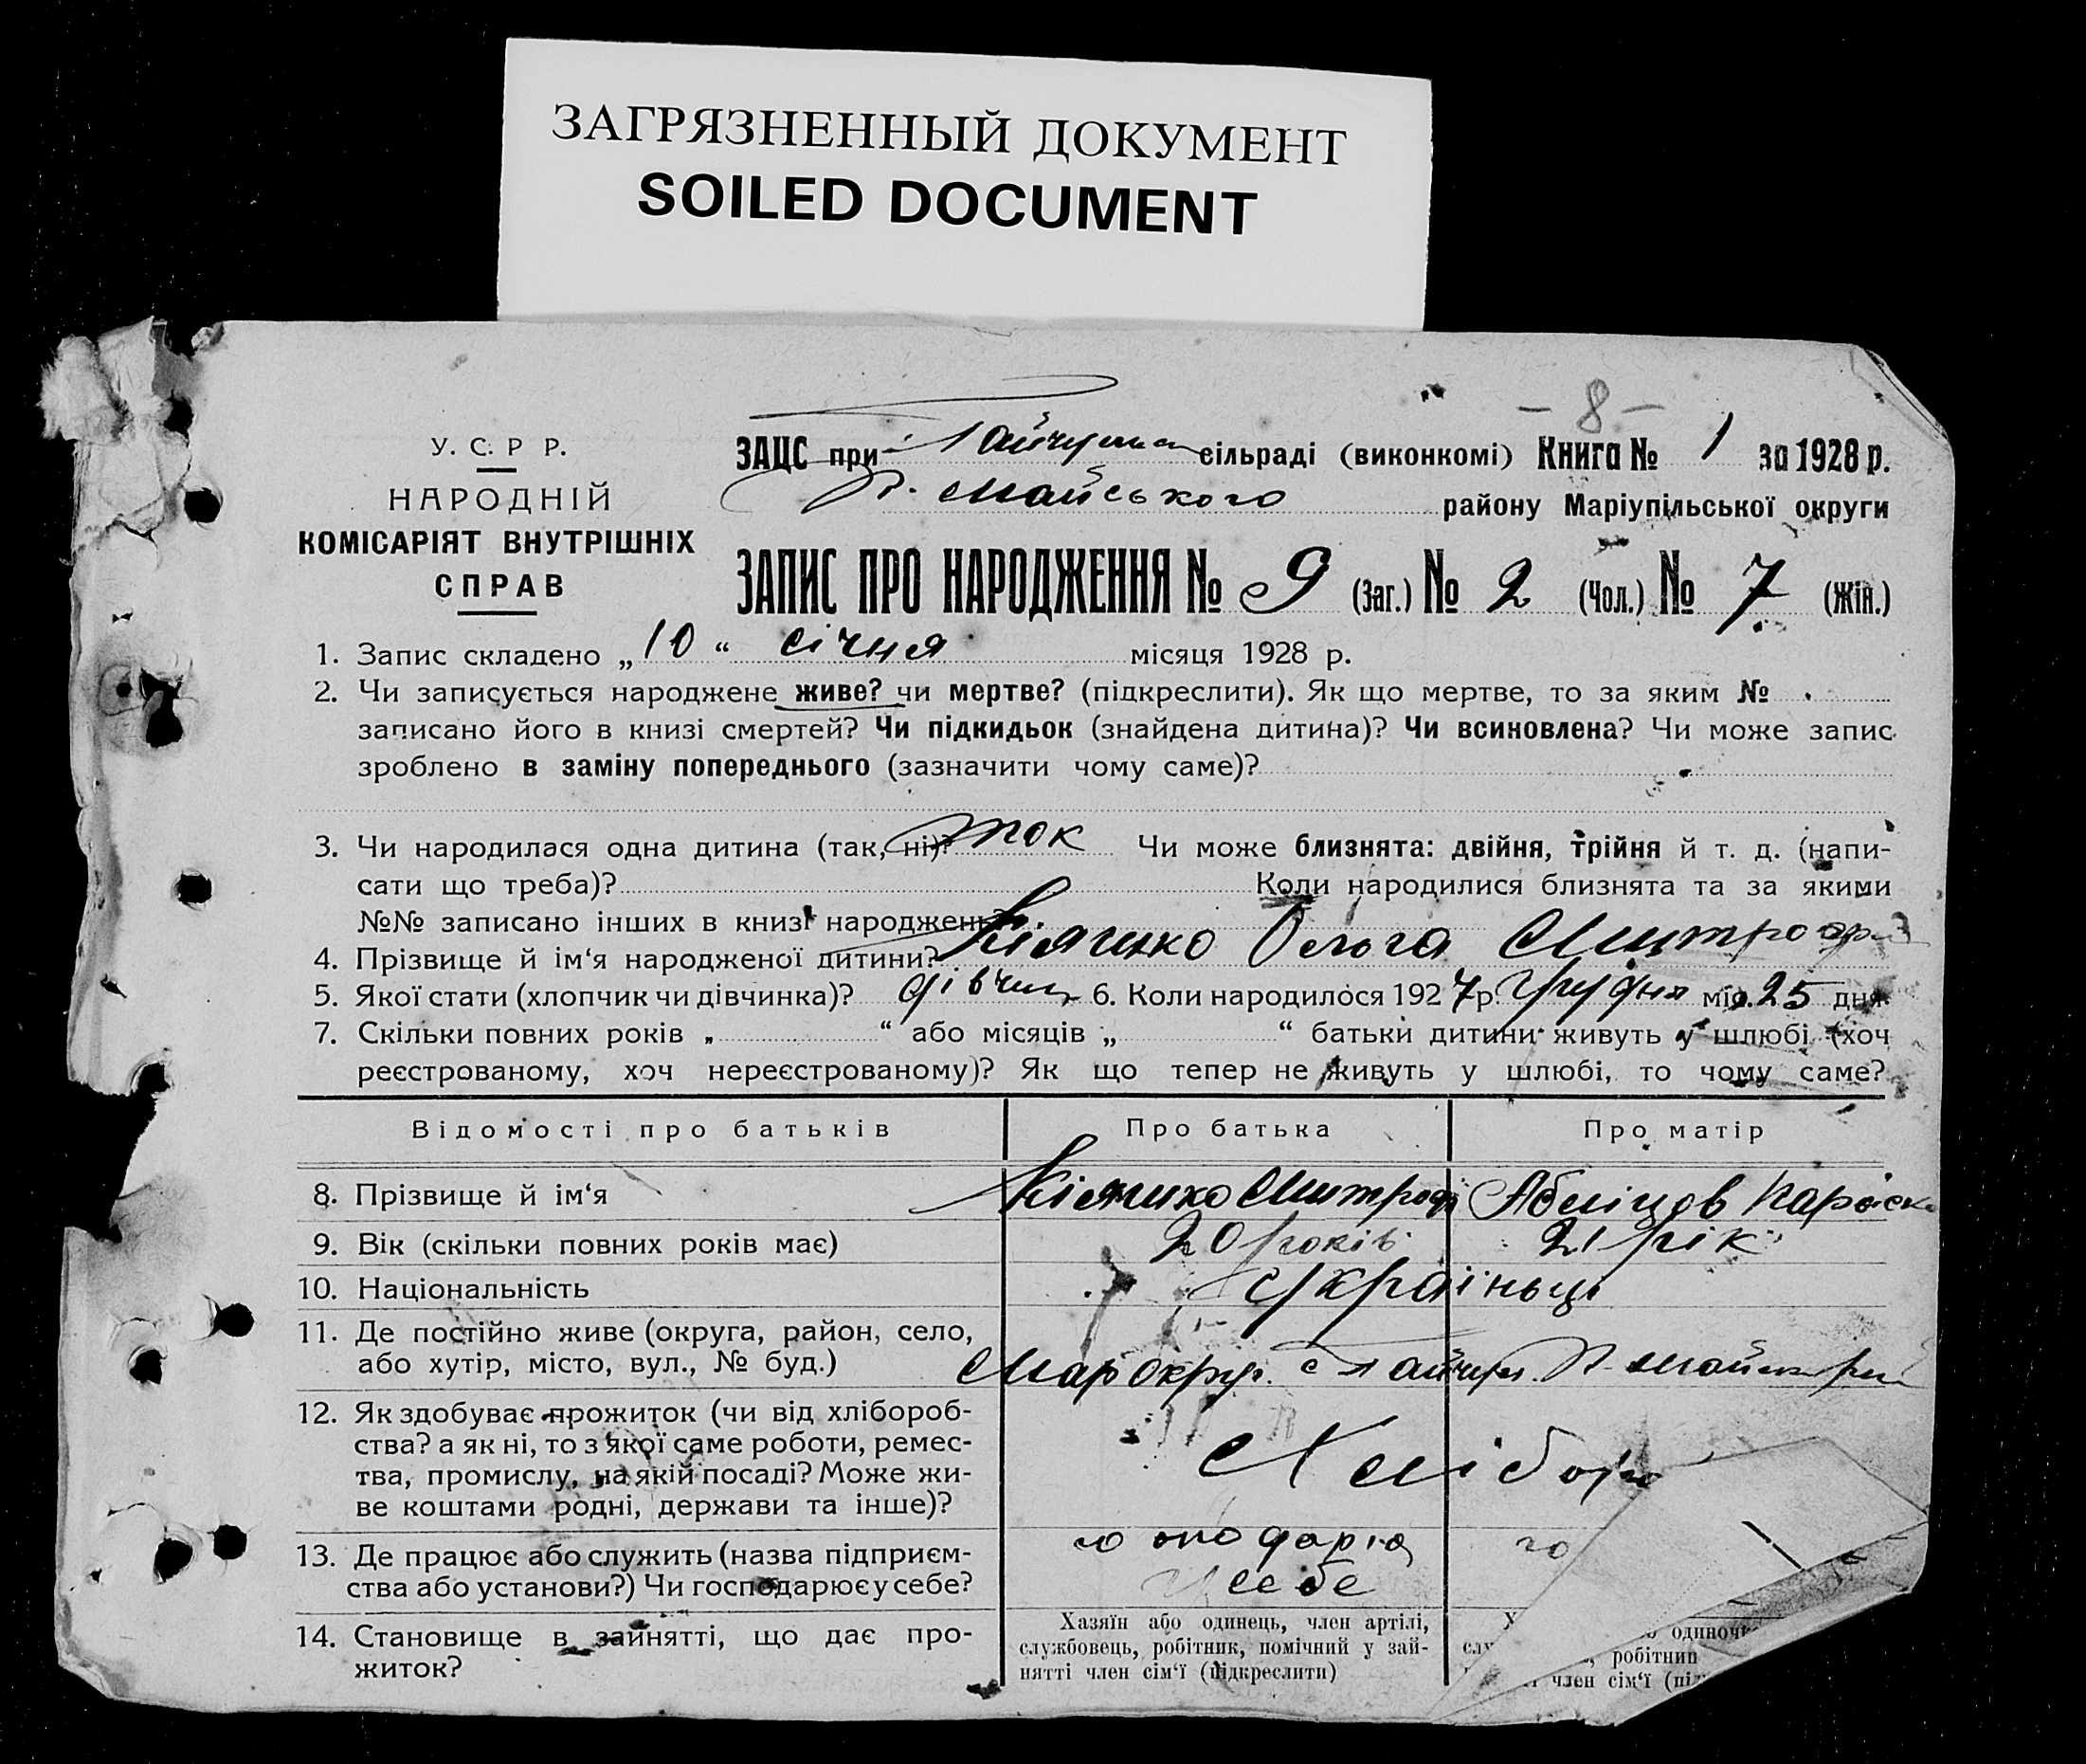 ЗАГРЯЗНЕННЫЙ ДОКУМЕНТ
SOILED DOCUMENT
- 8 -
У. С. Р Р.
НАРОДНІЙ
КОМІСАРІЯТ ВНУТРІШНІХ
СПРАВ
ЗАЦС при сільраді (виконкомі) Книга № 1 за 1928 р.
Майського району Маріупільської округи
ЗАПИС ПРО НАРОДЖЕННЯ № 9 (Заг.) № 2 (Чол.) № 7 (Жін.)
1. Запис складено „ 10 “ січня місяця 1928 р.
2. Чи записується народжене живе? чи мертве? (підкреслити). Як що мертве, то за яким №
записано його в книзі смертей? Чи підкидьок (знайдена дитина)? Чи всиновлена? Чи може запис
зроблено в заміну попереднього (зазначити чому саме)?
3. Чи народилася одна дитина (так, ні)? так Чи може близнята: двійня, трійня й т. д. (напи-
сати що треба)? Коли народилися близнята та за якими
№№ записано інших в книзі народжень?
4. Прізвище й ім‘я народженої дитини? Ольга Митроф
5. Якої стати (хлопчик чи дівчинка)? дівчин 6. Коли народилося 1927 р. Грудня міс. 25 дня.
7. Скільки повних років „ “ або місяців „ “ батьки дитини живуть у шлюбі (хоч
реєстрованому, хоч нереєстрованому)? Як що тепер не живуть у шлюбі, то чому саме?
Відомості про батьків Про батька Про матір
8. Прізвище й ім‘я Митроф
9. Вік (скільки повних років має) 20 років 21 рік
10. Національність Українці
11. Де постійно живе (округа, район, село,
або хутір, місто, вул., № буд.) Мар округ. с
12. Як здобуває прожиток (чи від хлібороб-
ства? а як ні, то з якої саме роботи, ремес-
тва, промислу, на якій посаді? Може жи-
ве коштами родні, держави та інше)?
Хлібор
13. Де працює або служить (назва підприєм-
ства або установи?) Чи господарює у себе?
себе
14. Становище в зайнятті, що дає про-
житок?
Хазяїн або одинець, член артілі,
службовець, робітник, помічний у зай-
нятті член сім‘ї (підкреслити)
робітник
член сім‘ї